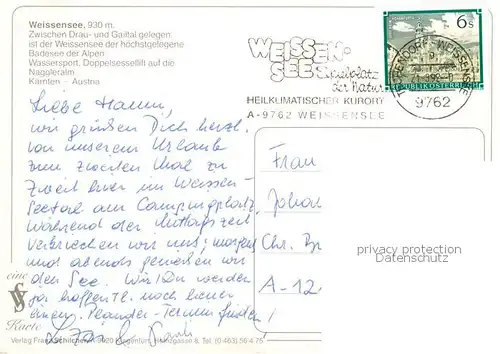 Weissensee, 930 m.
Zwischen Drau- und Gailtal gelegen,
ist der Weissensee der höchstgelegene
Badesee der Alpen
Wassersport, Doppelsessellift auf die
Nagaleralm
Kärnten - Austria
WEISSEN-
SEE Spielplatz
der Natur
HEILKLIMATISCHER KURORT
A-9762 WEISSENSEE
6s
REPUBLIK ÖSTERREICH
9762
Liebe Hanni,
wir grüßen Dich herzl.
von unserem Urlaube
zum zweiten Mal zu
zweit hier im Weissen-
seetal am Campingplatz.
Während der Mittagszeit
verkriechen wir uns; morgens
und abends genießen wir
den See. Wir/Du werden
ja hoffentl. noch heuer
einen Plauder-Termin finden!
Frau
Johan
Chr. Br
A-12
privacy protection
Datenschutz
eine
Karte
Verlag Franz Schilcher, A-9020 Klagenfurt, 8, Tel. (0 463) 56 4 75